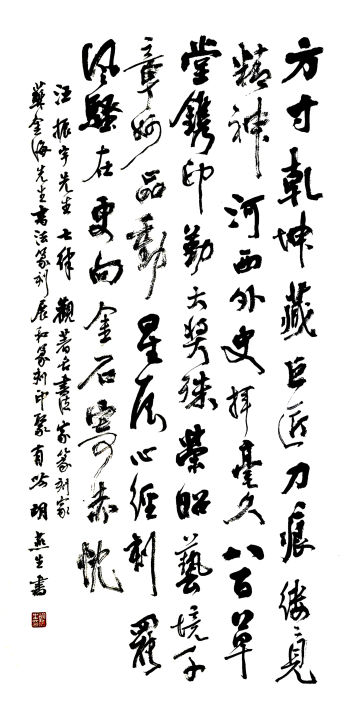 方寸乾坤藏巨匠刀痕缕缕見
精神河西外史挥毫久八百草
堂鐫印勤大奖殊榮昭藝境千
章妙品動星辰心經刻罷
风騷在更向金石寄赤忱
汪振宇先生七律觀著名書法家篆刻家
蘇金海先生書法篆刻展和篆刻印聚有感 生書